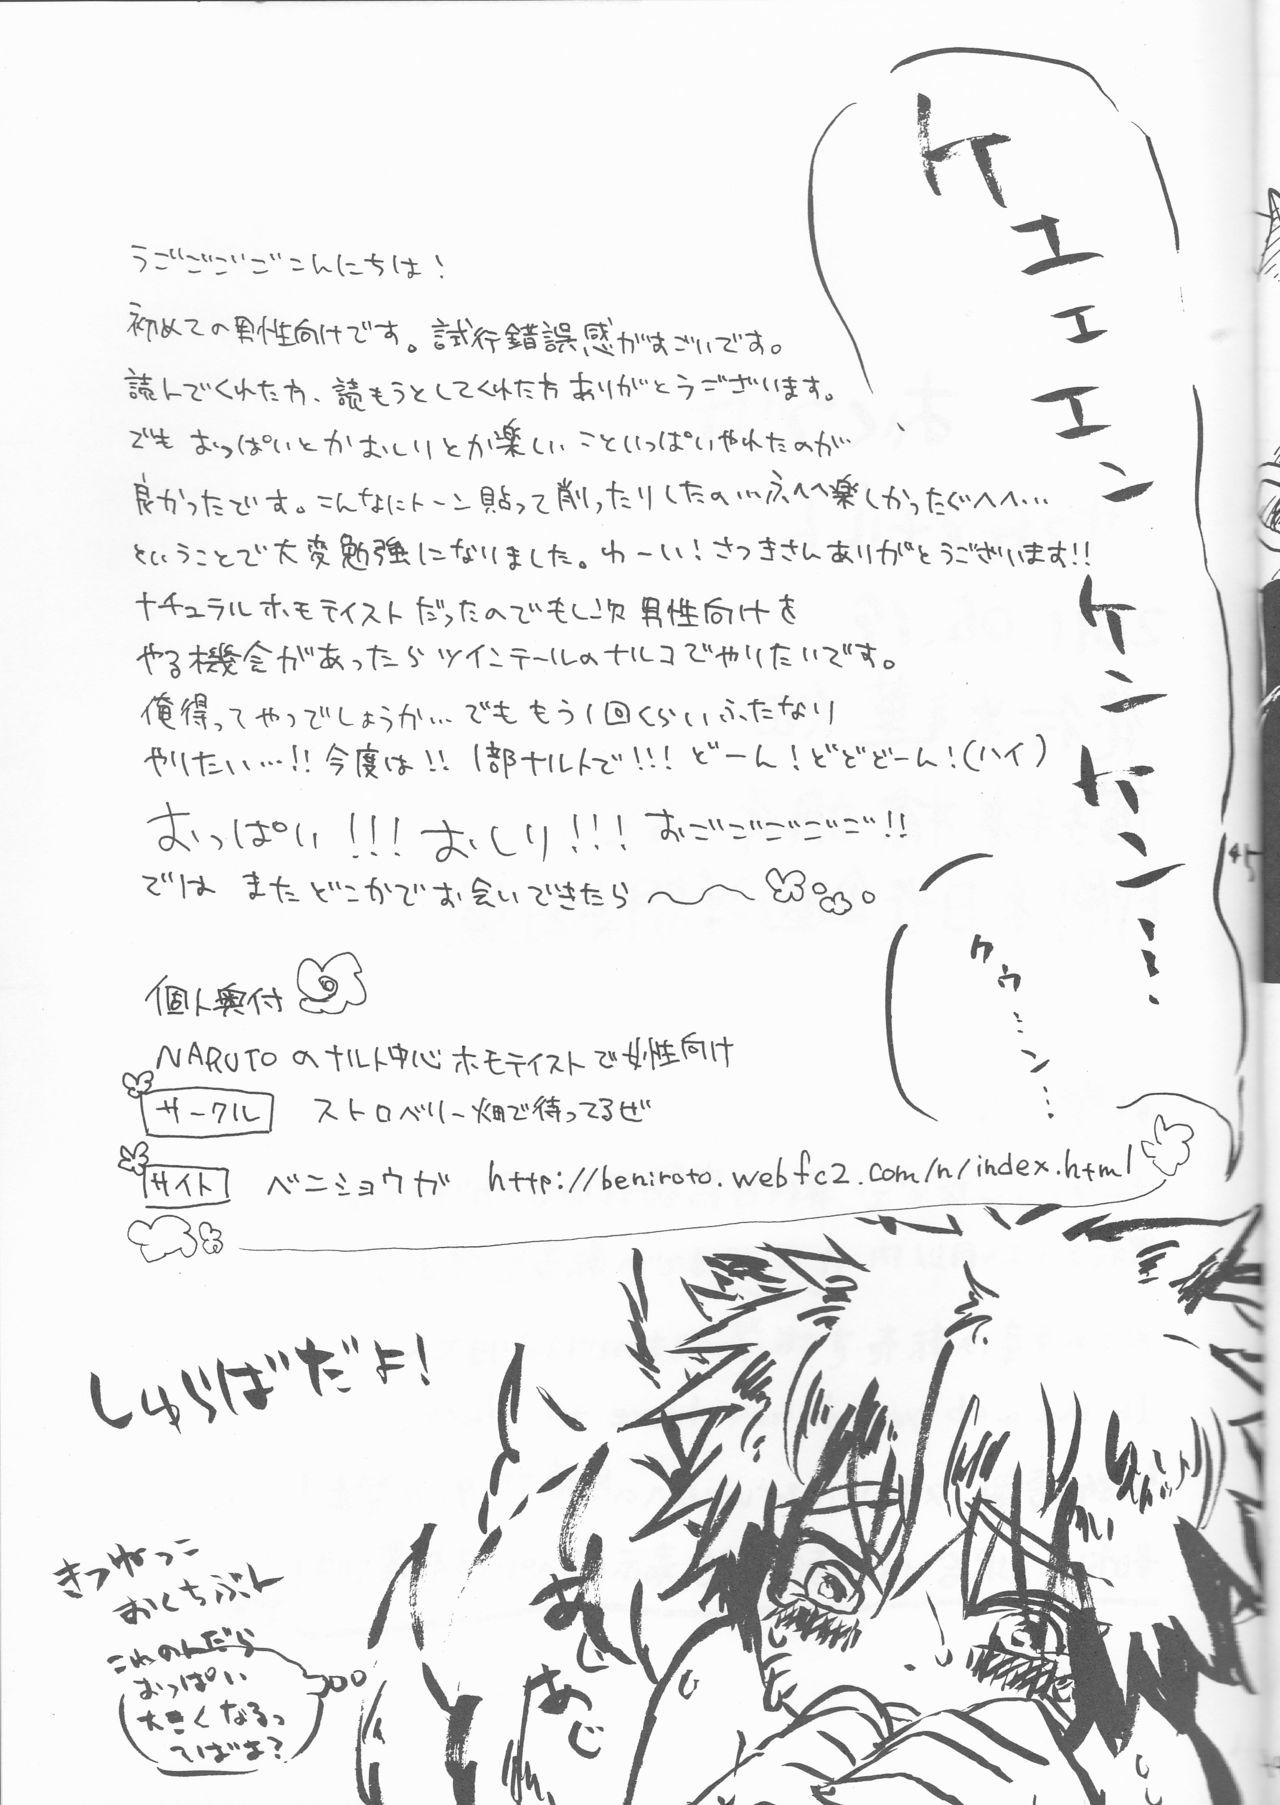 ケェェェンケンケン…
クゥ…ン…
うごごごごこんにちは！
初めての男性向けです。試行錯誤感がすごいです。
読んでくれた方、読もうとしてくれた方ありがとうございます。
でも おっぱいとかおしりとか楽しいこといっぱいやれたのが
良かったです。こんなにトーン貼って削ったりしたの…ふへへ楽しかったぐへへ…
ということで大変勉強になりました。わーい！さつきさんありがとうございます!!
ナチュラルホモテイストだったのでもし次男性向けを
やる機会があったらツインテールのナルコでやりたいです。
俺得ってやつでしょうか…でももう1回くらいふたなり
やりたい…!!今度は!!1部ナルトで!!!どーん！どどどーん！(ハイ)
おっぱい!!!おしり!!!おごごごごご!!
では またどこかでお会いできたら〜
個人奥付
NARUTOのナルト中心ホモテイストで女性向け
サークル ストロベリー畑で待ってるぜ
サイト ベニショウガ http://beniroto.webfc2.com/n/index.html
しゅらばだよ！
きつねっこ
おくちぶん
これのんだら
おっぱい
大きくなるっ
てばよ？
あじ
あじ